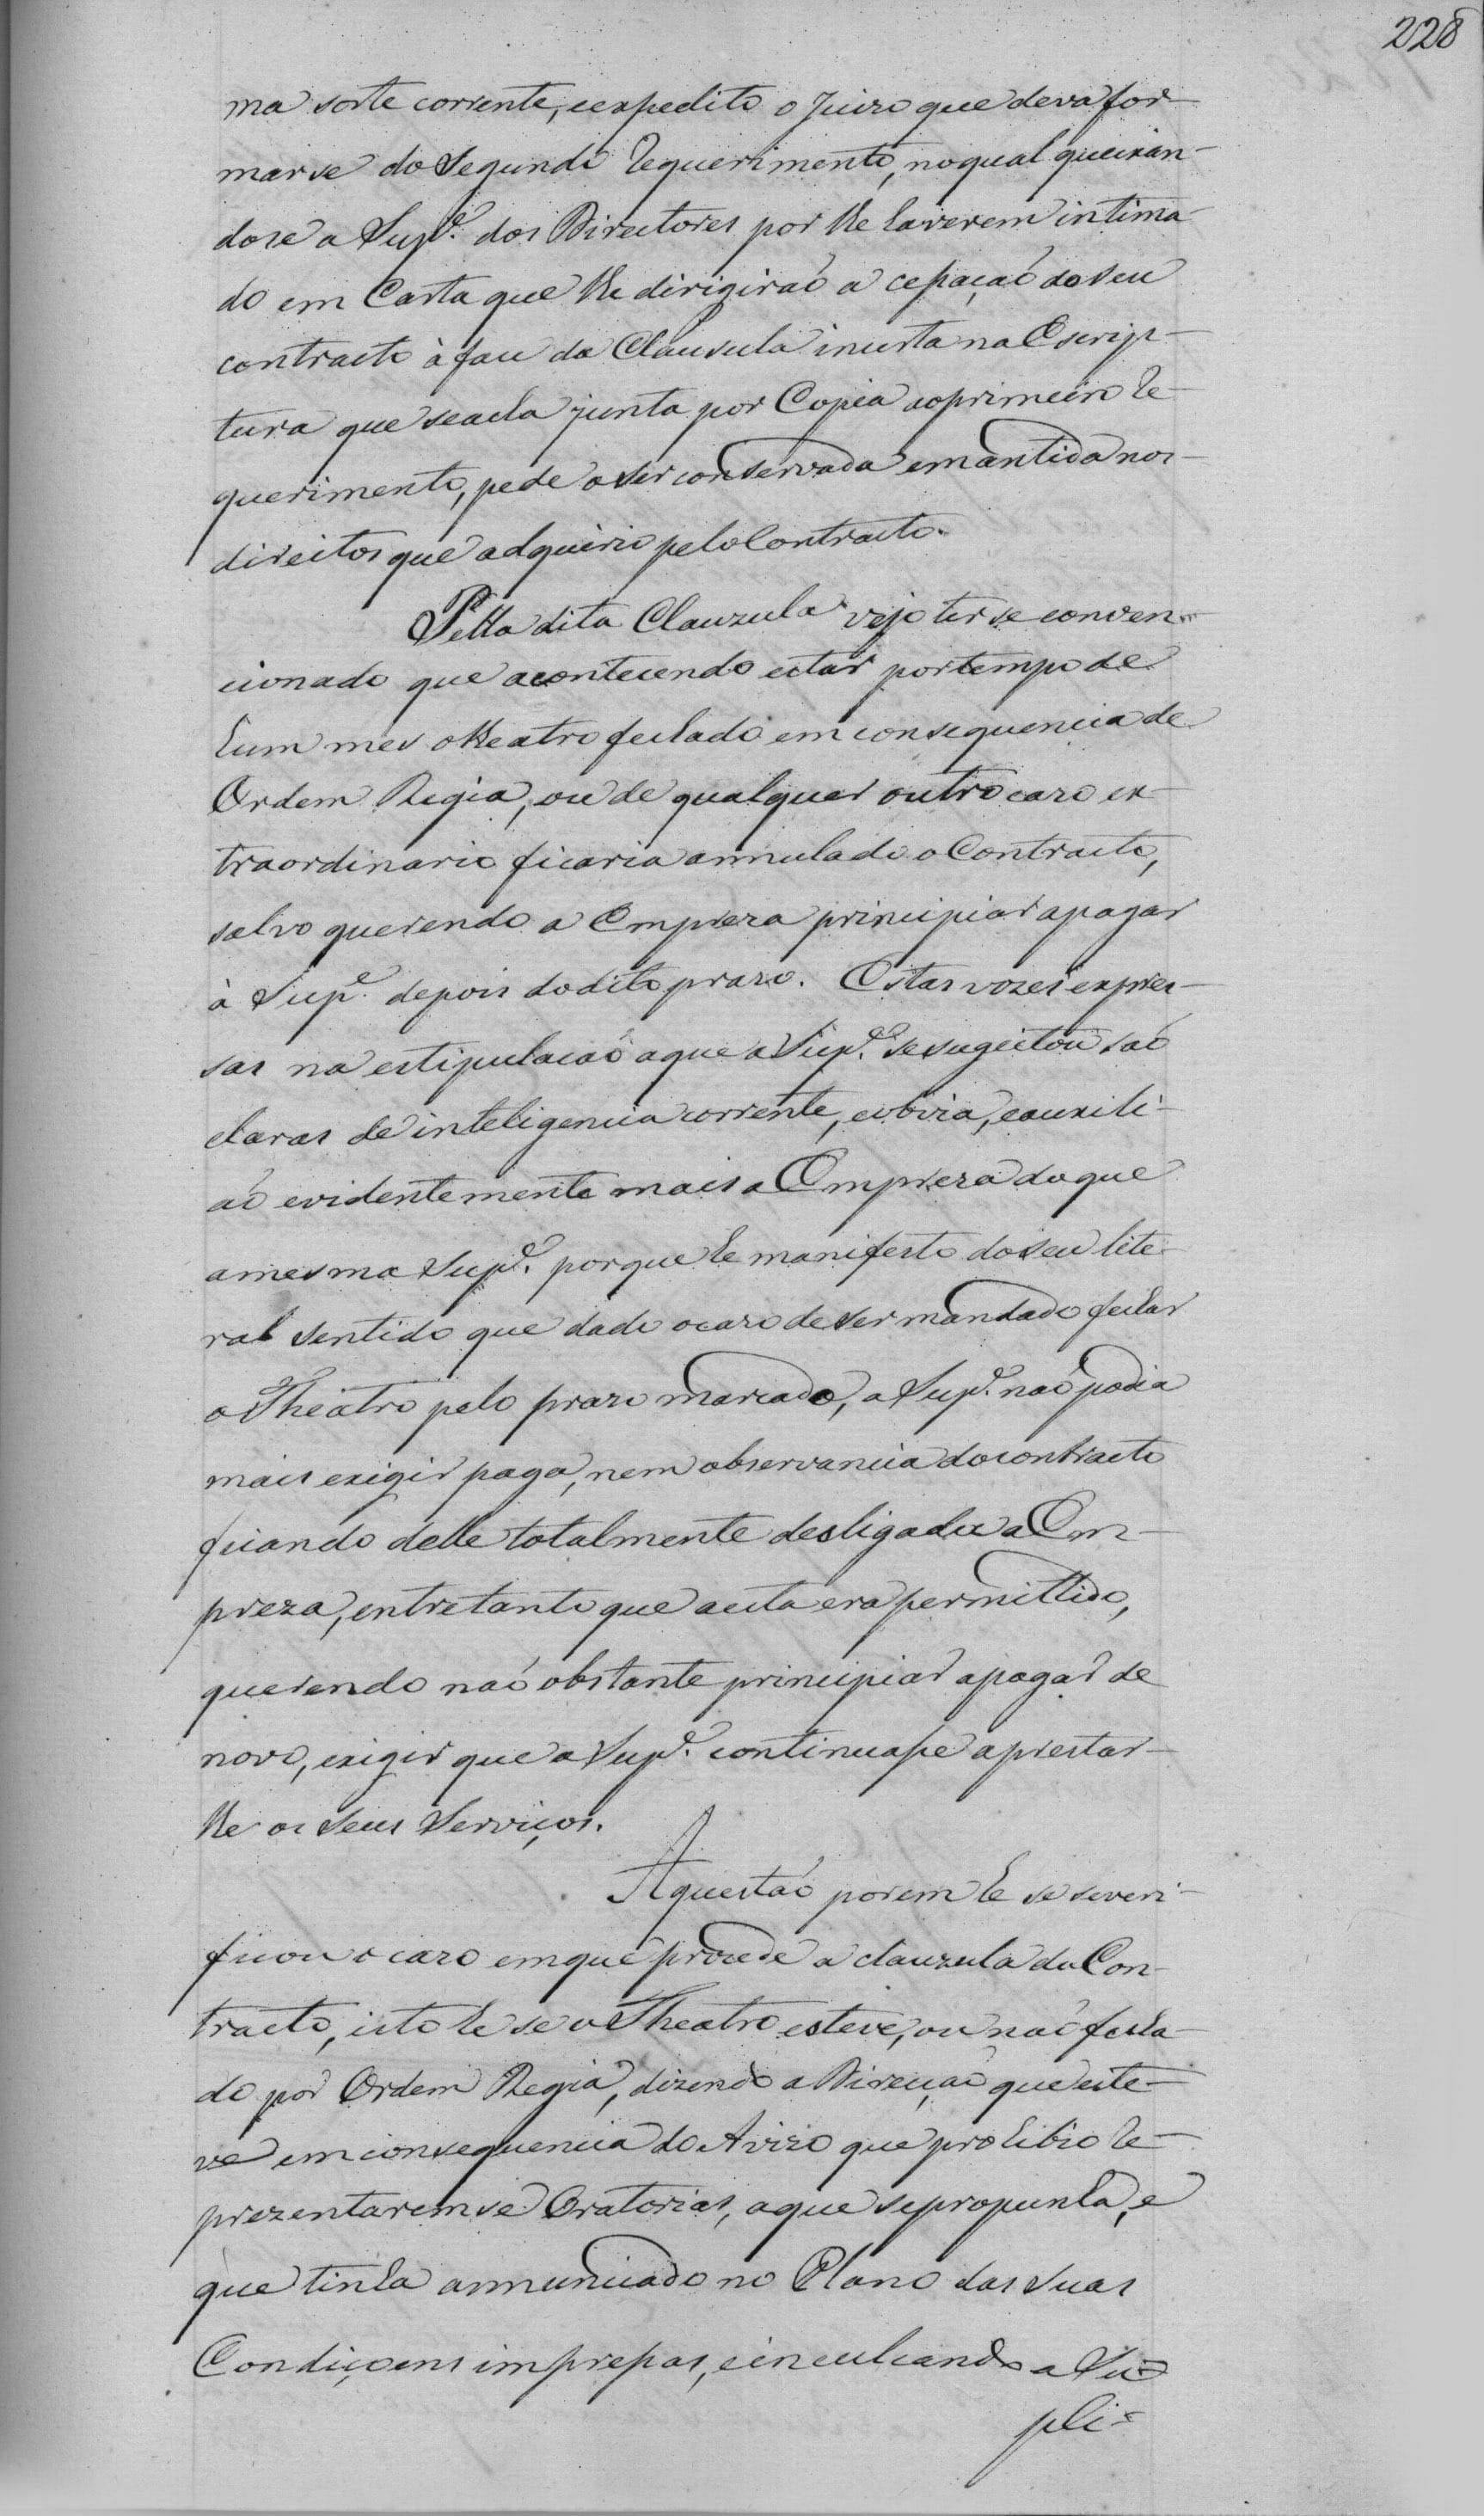 228
ma sorte corrente, e expedito o Juizo que deva for-
marse do Segundo Requerimento, no qual queixan-
dose a Sup.e dos Directores por lhe haverem intima-
do em Carta que lhe dirigiraõ a cessaçaõ do seu
contracto à face da Clausula inserta na Escrip-
tura que se acha junta por Copia ao primeiro Re-
querimento, pede o ser conservada e mantida nos
direitos que adquirio pelo Contracto.
Pella dita Clauzula vejo ter se conven-
cionado que acontecendo estar por tempo de
hum mes o theatro fechado em consequencia de
Ordem Regia, ou de qualquer outro cazo ex-
traordinario ficaria annulado o Contracto,
salvo querendo a Empreza principiar a pagar
à Sup.e depois do dito prazo. Estas vozes expres-
sas na estipulacaõ a que a Sup.e se sugeitou saõ
claras de inteligencia corrente, e obvia, e auxili-
aõ evidentemente mais a Empreza do que
a mesma Sup.e porque he manifesto do seu lite-
ral sentido que dado o cazo de ser mandado fechar
o Theatro pelo prazo marcado, a Sup.e naõ podia
mais exigir paga, nem observancia do contracto
ficando delle totalmente desligada a Em-
preza, entretanto que a esta era permittido,
querendo naõ obstante principiar a pagar de
novo, exigir que a Sup.e continuasse a prestar-
lhe os seus Serviços.
A questaõ porem he se se veri-
ficou o cazo em que procede a clauzula do Con-
tracto, isto he se o Theatro esteve, ou naõ fecha-
do por Ordem Regia, dizendo a Direcçaõ que este-
ve em consequencia do Avizo que prohibio re-
prezentaremse Oratorias, a que se propunha, e
que tinha annunciado no Plano das suas
Condiçoens impressas, e inculcando a Su=
pli=